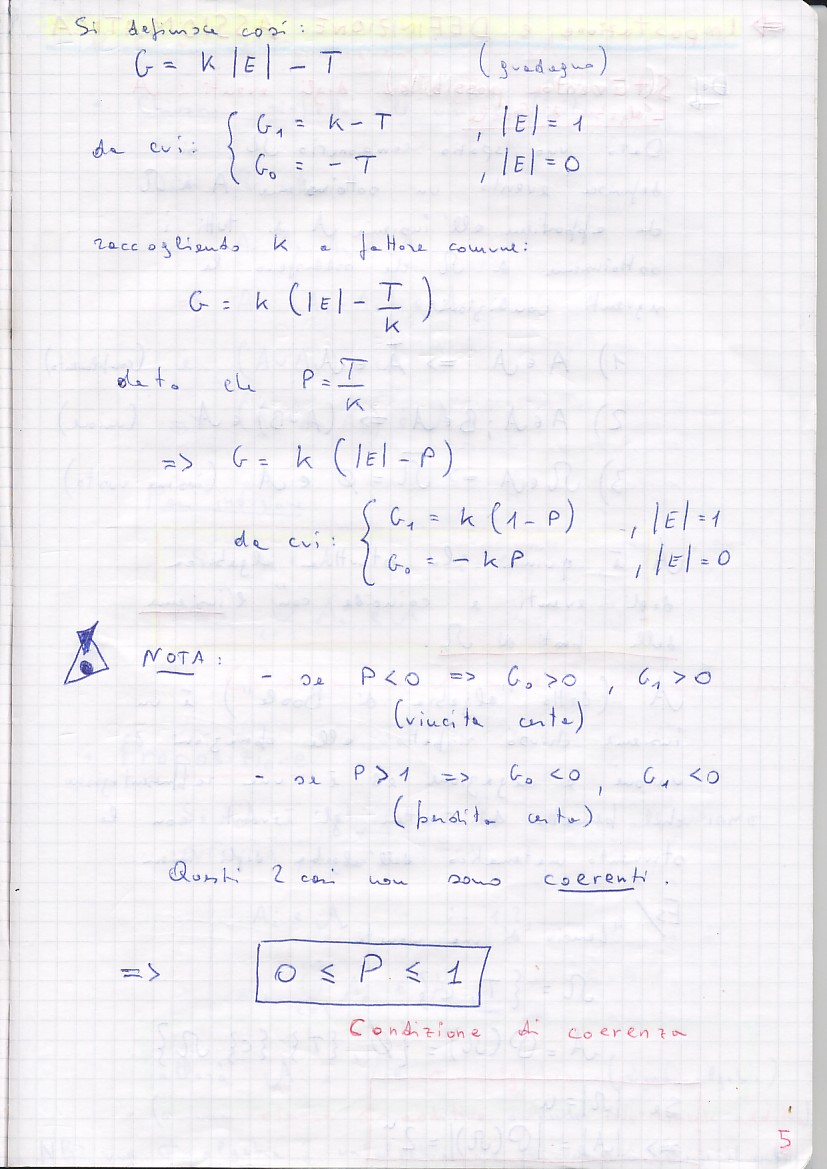 Si definisce così:
G = K |E| - T (guadagno)
da cui: { G₁ = K - T , |E| = 1
G₀ = - T , |E| = 0
raccogliendo K a fattore comune:
G = K (|E| - T/K)
dato che P = T/K
=> G = K (|E| - P)
da cui: { G₁ = K (1 - P) , |E| = 1
G₀ = - K P , |E| = 0
NOTA:
- se P < 0 => G₀ > 0 , G₁ > 0
(vincita certa)
- se P > 1 => G₀ < 0 , G₁ < 0
(perdita certa)
Questi 2 casi non sono coerenti.
=> 0 ≤ P ≤ 1
Condizione di coerenza
5